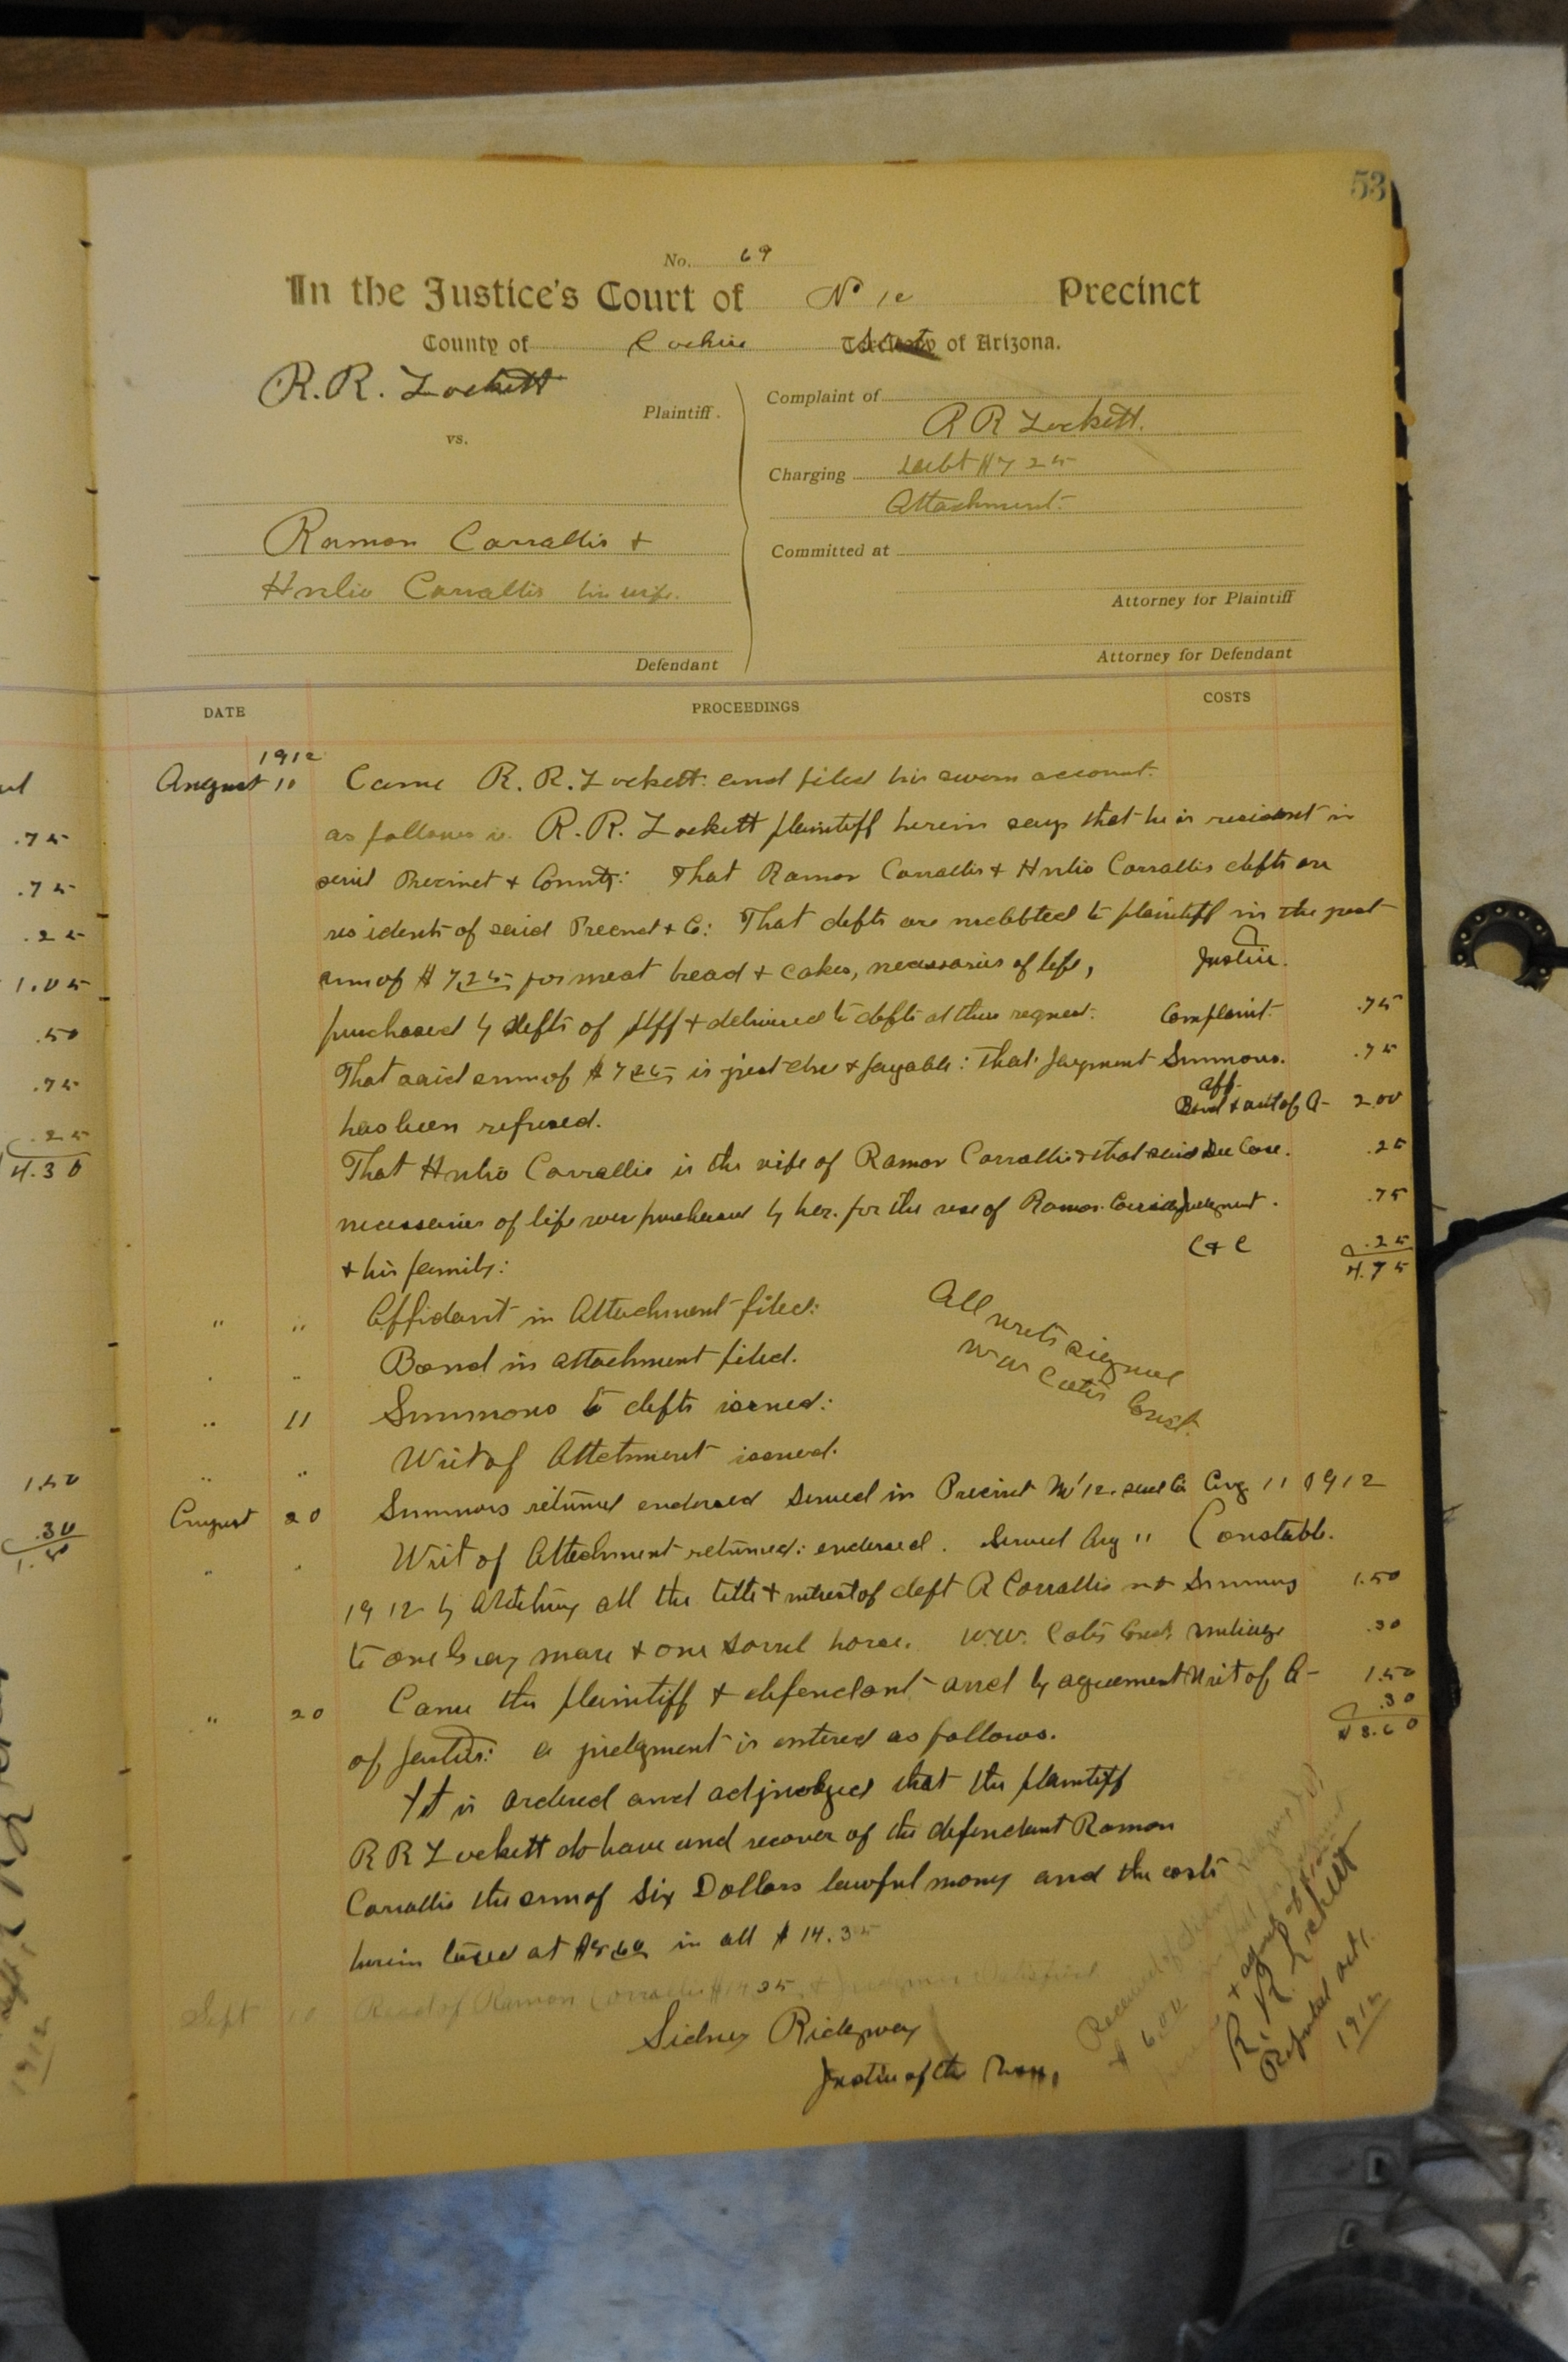 53
No. 69
In the Justice's Court of No 12 Precinct
County of Cochise State of Arizona.
R. R. Lockett
Plaintiff.
vs.
Ramon Corrallis +
Hulio Corrallis his wife.
Defendant
Complaint of
R R Lockett.
Charging debt $7 25
Attachment.
Committed at
Attorney for Plaintiff
Attorney for Defendant
DATE PROCEEDINGS COSTS
1912
August 11 Came R. R. Lockett and filed his sworn account.
as follows R. R. Lockett plaintiff herein says that he is resident in
said Precinct + County: That Ramon Corrallis + Hulio Corrallis defts are
residents of said Precnct + Co: That defts are indebted to plaintiff in the just
sum of $ 7.25 for meat bread + cakes, necessaries of life, Justice.
purchased by defts of plff + delivered to defts at their request. Complaint. .75
That said sum of $ 7.25 is just due + payable: that payment Summons. .75
aff.
has been refused. Bond + writ of A- 2.00
That Hulio Corrallis is the wife of Ramon Corrallis + that said Doc Case. .25
necessaries of life were purchased by her. for the use of Ramon Corrallis Judgment. .75
+ his family: C + C .25
4.75
" " Affidavit in Attachment filed:
Bond in attachment filed.
" 11 Summons to defts issued:
" " Writ of Attatment issued.
All writs signed
W W Cates Const.
August 20 Summons returned endorsed Served in Precinct No 12. said Co Aug 11 1912
" Writ of Attachment returned: endorsed. Served Aug 11 Constable.
1912 by Attatching all the title + interest of deft R Corrallis Summons 1.50
to one Gray mare + one Sorrel horse. W.W. Cates Const. mileage .30
" 20 Came the plaintiff + defendant and by agreement Writ of A- 1.50
.30
of parties: a judgment is entered as follows. $8.60
It is ordered and adjudged that the plaintiff
R R Lockett do have and recover of the defendant Ramon
Corrallis the sum of Six Dollars lawful money and the costs
herein taxed at $8.60 in all $ 14.35
Sept 10 Recd of Ramon Corrallis $14.35 + Judgment Satisfied
Sidney Ridgway
Justice of the Peace
Received of Sidney Ridgway
$ 6.00
R. R. Lockett
1912
.75
.75
.25
1.05
.50
.75
.25
4.30
1.50
.30
1912